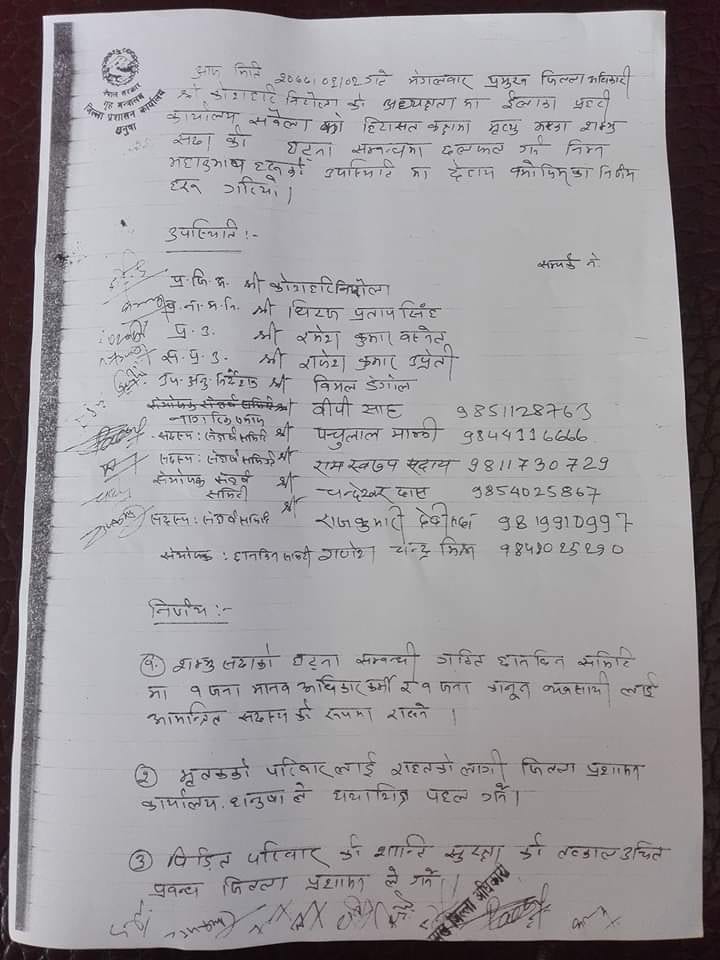 नेपाल सरकार
गृह मन्त्रालय
जिल्ला प्रशासन कार्यालय
धनुषा
आज मिति २०७७।०३।०२ गते मंगलवार प्रमुख जिल्ला अधिकारी
श्री कोशहरि निरौला को अध्यक्षता मा ईलाका प्रहरी
कार्यालय सबैला को हिरासत कक्षमा मृत्यु भएका शम्भु
सदा को घटना सम्बन्धमा छलफल गर्न निम्न
महानुभाव हरुको उपस्थिति मा देहाय बमोजिमका निर्णय
हरु गरियो।
उपस्थिति :-
सम्पर्क नं.
प्र.जि.अ. श्री कोशहरि निरौला
श्री धिरज प्रताप सिंह
प्र.उ. श्री रमेश कुमार बस्नेत
स.प्र.उ. श्री राजेश कुमार उप्रेती
उप-अनु-निर्देशक श्री विमल डंगोल
श्री वीपी साह 9851128763
सदस्य: संघर्ष समिति श्री पन्चुलाल माझी 9844116666
सदस्य: संघर्ष समिति श्री राम स्वरुप सदाय 9811730729
संयोजक संघर्ष समिती श्री चन्देश्वर दास 9854025867
सदस्य: संघर्ष समिति श्री राजकुमारी देवी सदा 9819910997
संयोजक: छानविन समिती गणेश चन्द्र मिश्र
निर्णय :-
१. शम्भु सदाको घटना सम्वन्धी गठित छानविन समिति
मा १ जना मानव अधिकार कर्मी र १ जना कानून व्यवसायी लाई
आमन्त्रित सदस्य को रुपमा राख्ने।
२ मृतकको परिवार लाई राहतको लागी जिल्ला प्रशासन
कार्यालय, धनुषा ले यथाशिघ्र पहल गर्ने।
३ पिडित परिवार को शान्ति सुरक्षा को तत्काल उचित
प्रवन्ध जिल्ला प्रशासन ले गर्ने।
प्रमुख जिल्ला अधिकारी